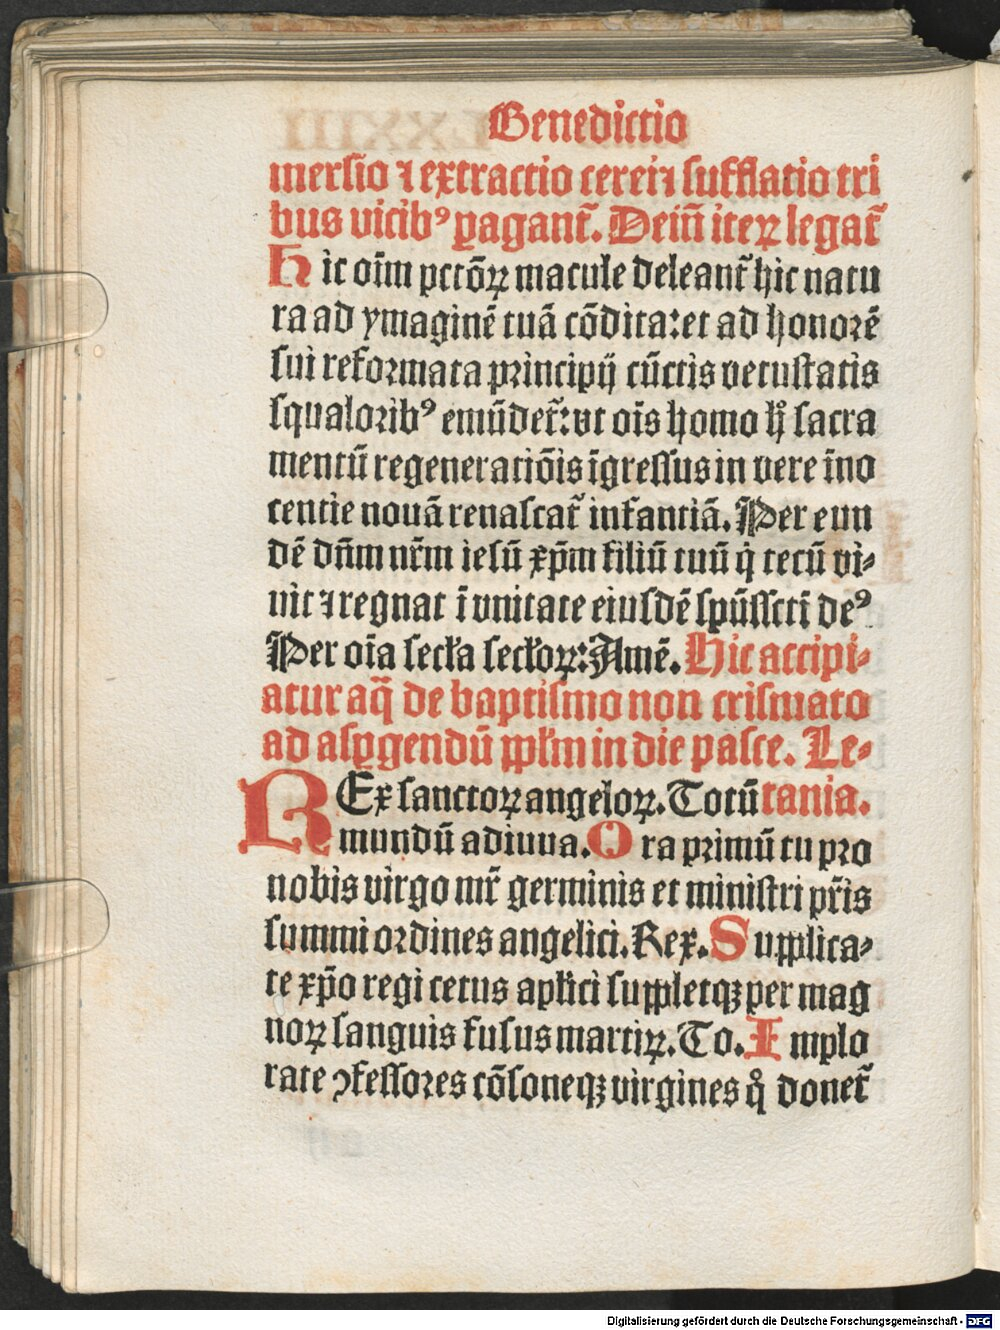 Benedictio
mersio ⁊ extractio cerei⁊ sufflatio tri
bus vicibꝰ pagant᷑. Dein̄ iteꝝ legat᷑
Hic oīm pctōꝝ macule deleant᷑ hic natu
ra ad ymaginē tuā cōdita: et ad honorē
sui reformata principij cūctis vetustatis
squaloribꝰ emūdet᷑: vt oīs homo hͦ sacra
mentū regeneratiōis īgressus in vere īno
centie nouā renascat᷑ infantiā. Per eun
dē dn̄m nr̄m iesū xp̄m filiū tuū q̇ tecū vi⸗
uit ⁊regnat ī vnitate eiusdē sp̄ūssct̄i deꝰ
Per oīa secl̄a secl̄oꝝ: Amē. Hic accipi⸗
atur aq̄ de baptismo non crismato
ad asꝑgendū ppl̄m in die pasce. Le⸗
REx sanctoꝝ angeloꝝ. Totū tania.
mundū adiuua. Ora primū tu pro
nobis virgo mr̄ germinis et ministri pr̄is
summi ordines angelici. Rex. Supplica⸗
te xp̄o regi cetus apl̄ici suppletqꝫ per mag
noꝝ sanguis fusus martiꝝ. To. Implo
rate ꝯfessores cōsoneqꝫ virgines qͦ donet᷑
Digitalisierung gefördert durch die Deutsche Forschungsgemeinschaft - DFG